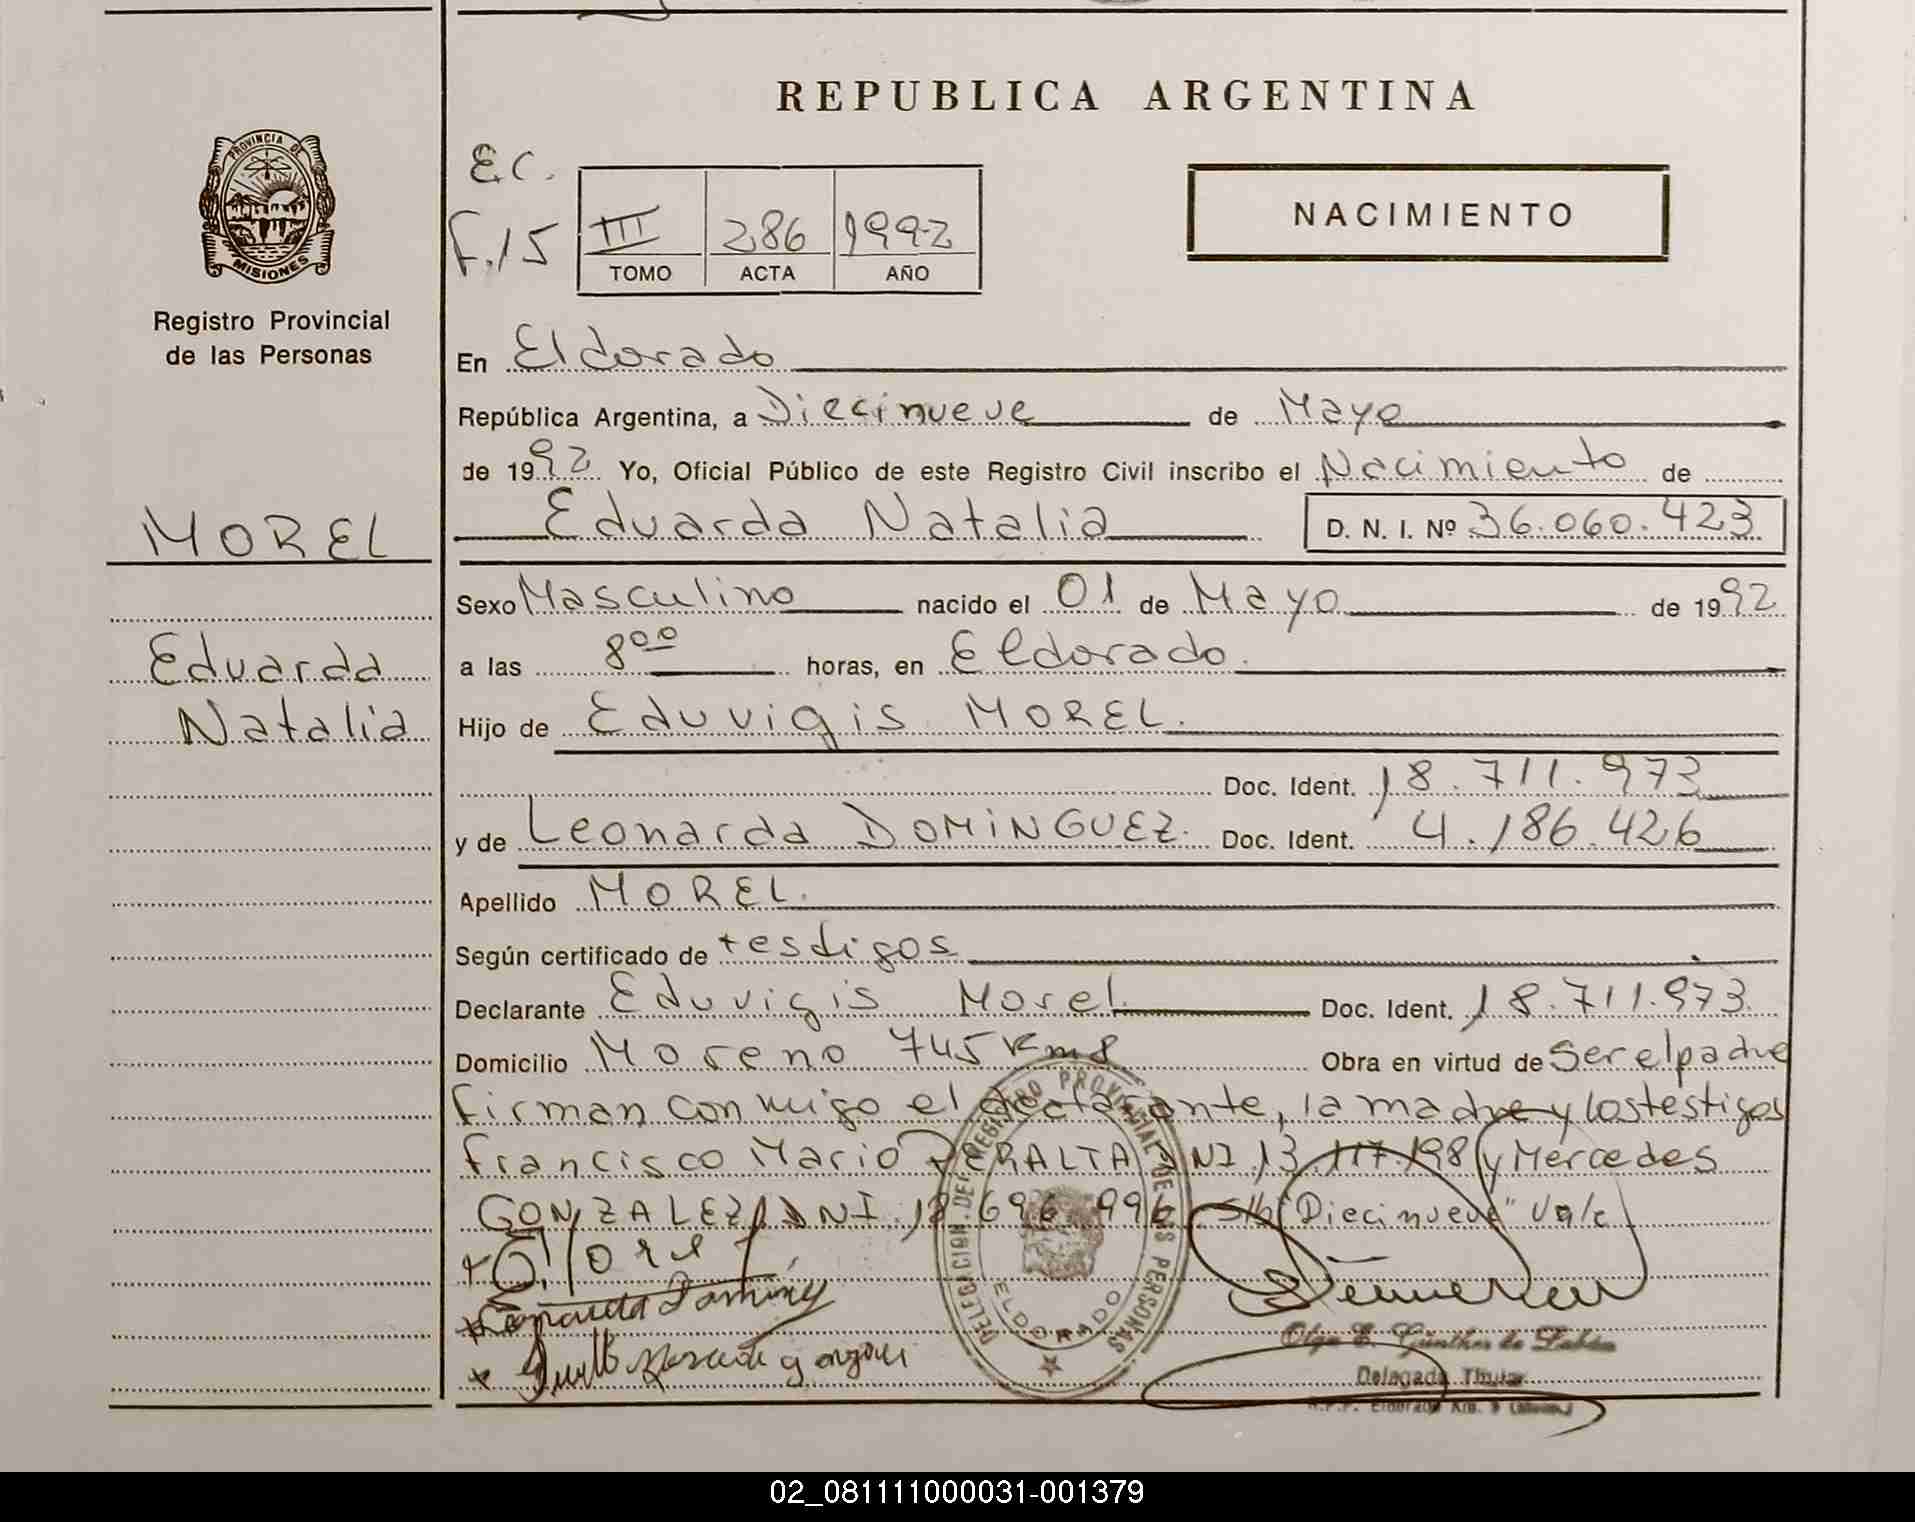 REPUBLICA ARGENTINA
PROVINCIA DE
MISIONES
Registro Provincial
de las Personas
E.C.
F. 15
III 286 1992
TOMO ACTA AÑO
NACIMIENTO
En Eldorado
República Argentina, a Diecinueve de Mayo
de 1992 Yo, Oficial Público de este Registro Civil inscribo el Nacimiento de
Eduarda Natalia D. N. I. Nº 36.060.423
MOREL
Eduarda
Natalia
Sexo Masculino nacido el 01 de Mayo de 1992
a las 8 00 horas, en Eldorado.
Hijo de Eduvigis MOREL.
Doc. Ident. 18.711.973
y de Leonarda DOMINGUEZ. Doc. Ident. 4.186.426
Apellido MOREL.
Según certificado de testigos
Declarante Eduvigis Morel Doc. Ident. 18.711.973
Domicilio Moreno 745 Km 8 Obra en virtud de Ser el padre
firman conmigo el declarante, la madre y los testigos
Francisco Mario PERALTA DNI 13.117.198 y Mercedes
GONZALEZ DNI 18.696.996 s/b "Diecinueve" Vale
DELEGACION DEL REGISTRO PROVINCIAL DE LAS PERSONAS
ELDORADO
Olga E. Günther de
Delegada Titular
R.P.P. Eldorado Km. 9
02_081111000031-001379